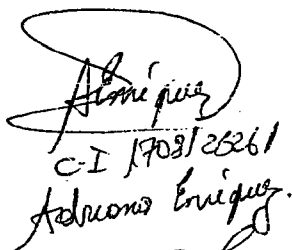 C-I 1708126261
Adriano Enríquez.